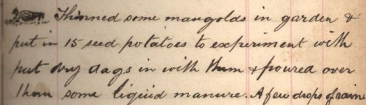 Thinned some mangolds in garden &
put in 15 seed potatoes to experiment with
put dry dags in with them & poured over
them some liquid manure. A few drops of rain